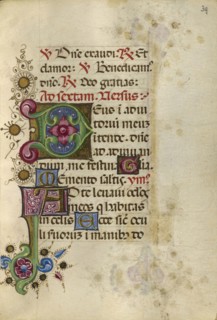 39
℣ Dñe exaudi. ℟ Et
clamor: ℣ Benedicam⁹.
dño. ℟ Deo gratias:
Ad sextam. Versus:
Deus i adiu
toriuʒ meuʒ
itende. dñe
ad adiuuan
dum me festina. Gla.
Memento salutis. ym⁹.
Ad te leuaui oculos
meos q habitas
in celis. Ecce sic ocu
li seruorum i manibus do